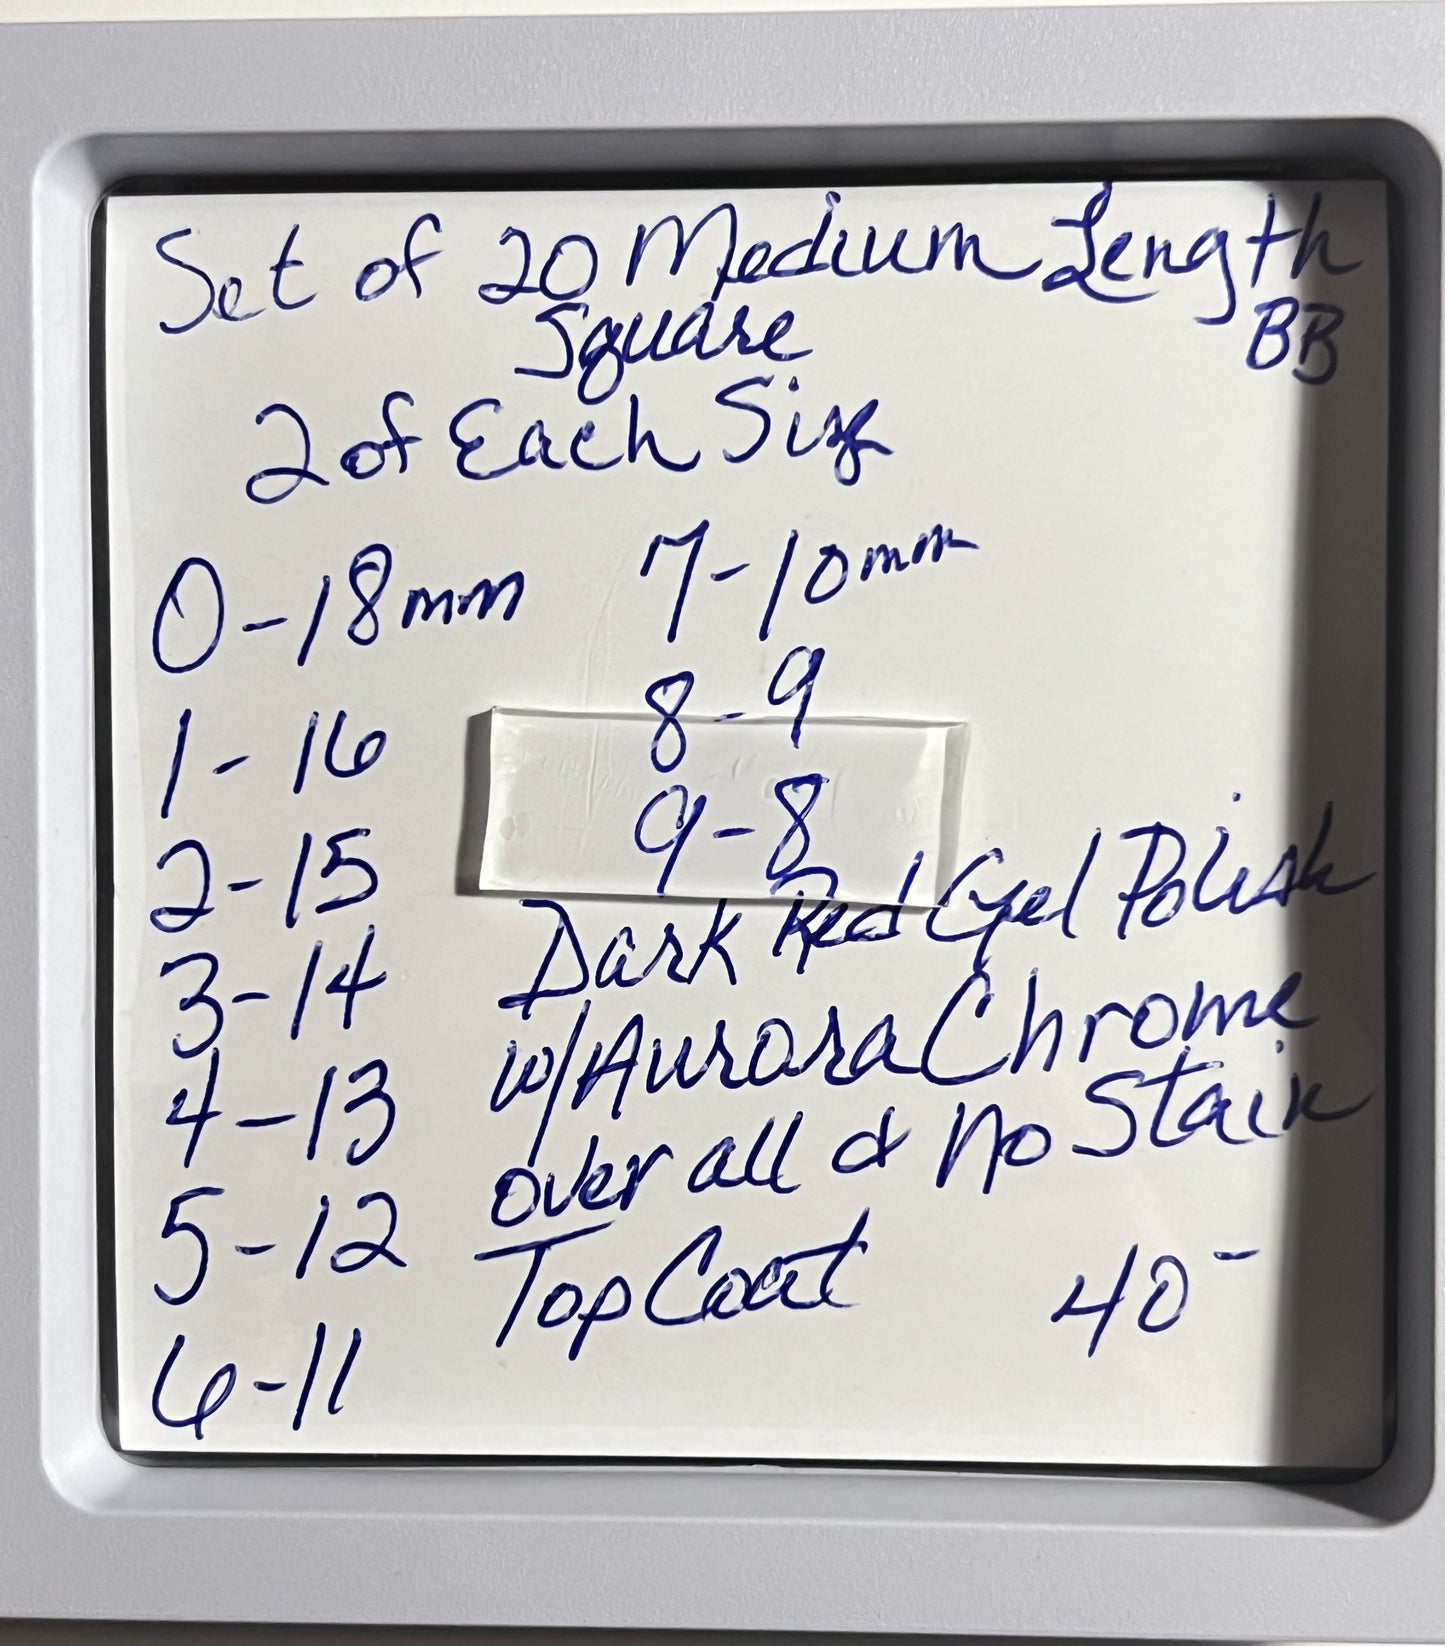 Set of 20 Medium Length
Square BB
2 of Each Size
0-18mm
1-16
2-15
3-14
4-13
5-12
6-11
7-10mm
8-9
9-8
Dark Red Gel Polish
w/Aurora Chrome
over all & No Stain
Top Coat 40-